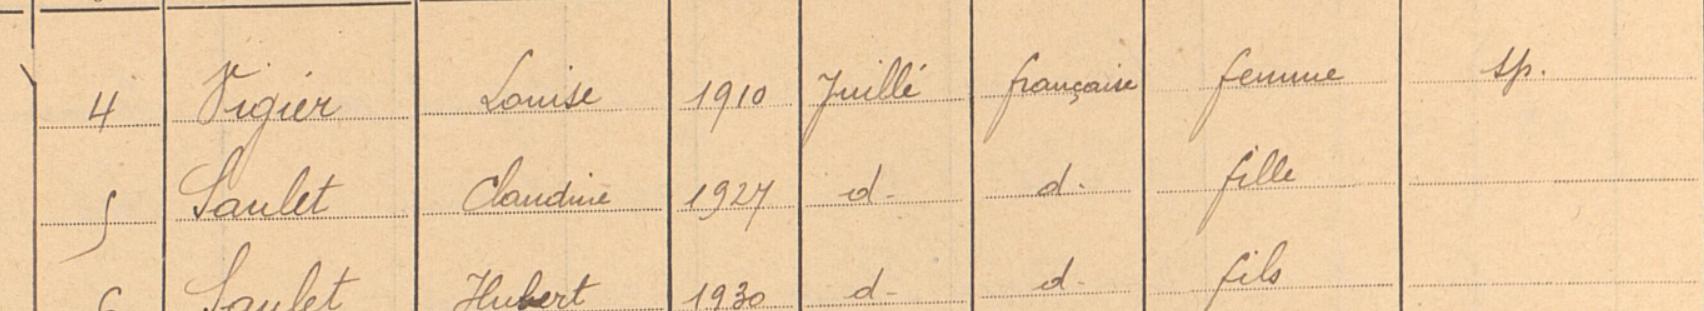 4 Vigier Louise 1910 Juillé française femme sp.
5 Saulet Claudine 1927 d- d- fille
6 Saulet Hubert 1930 d- d- fils